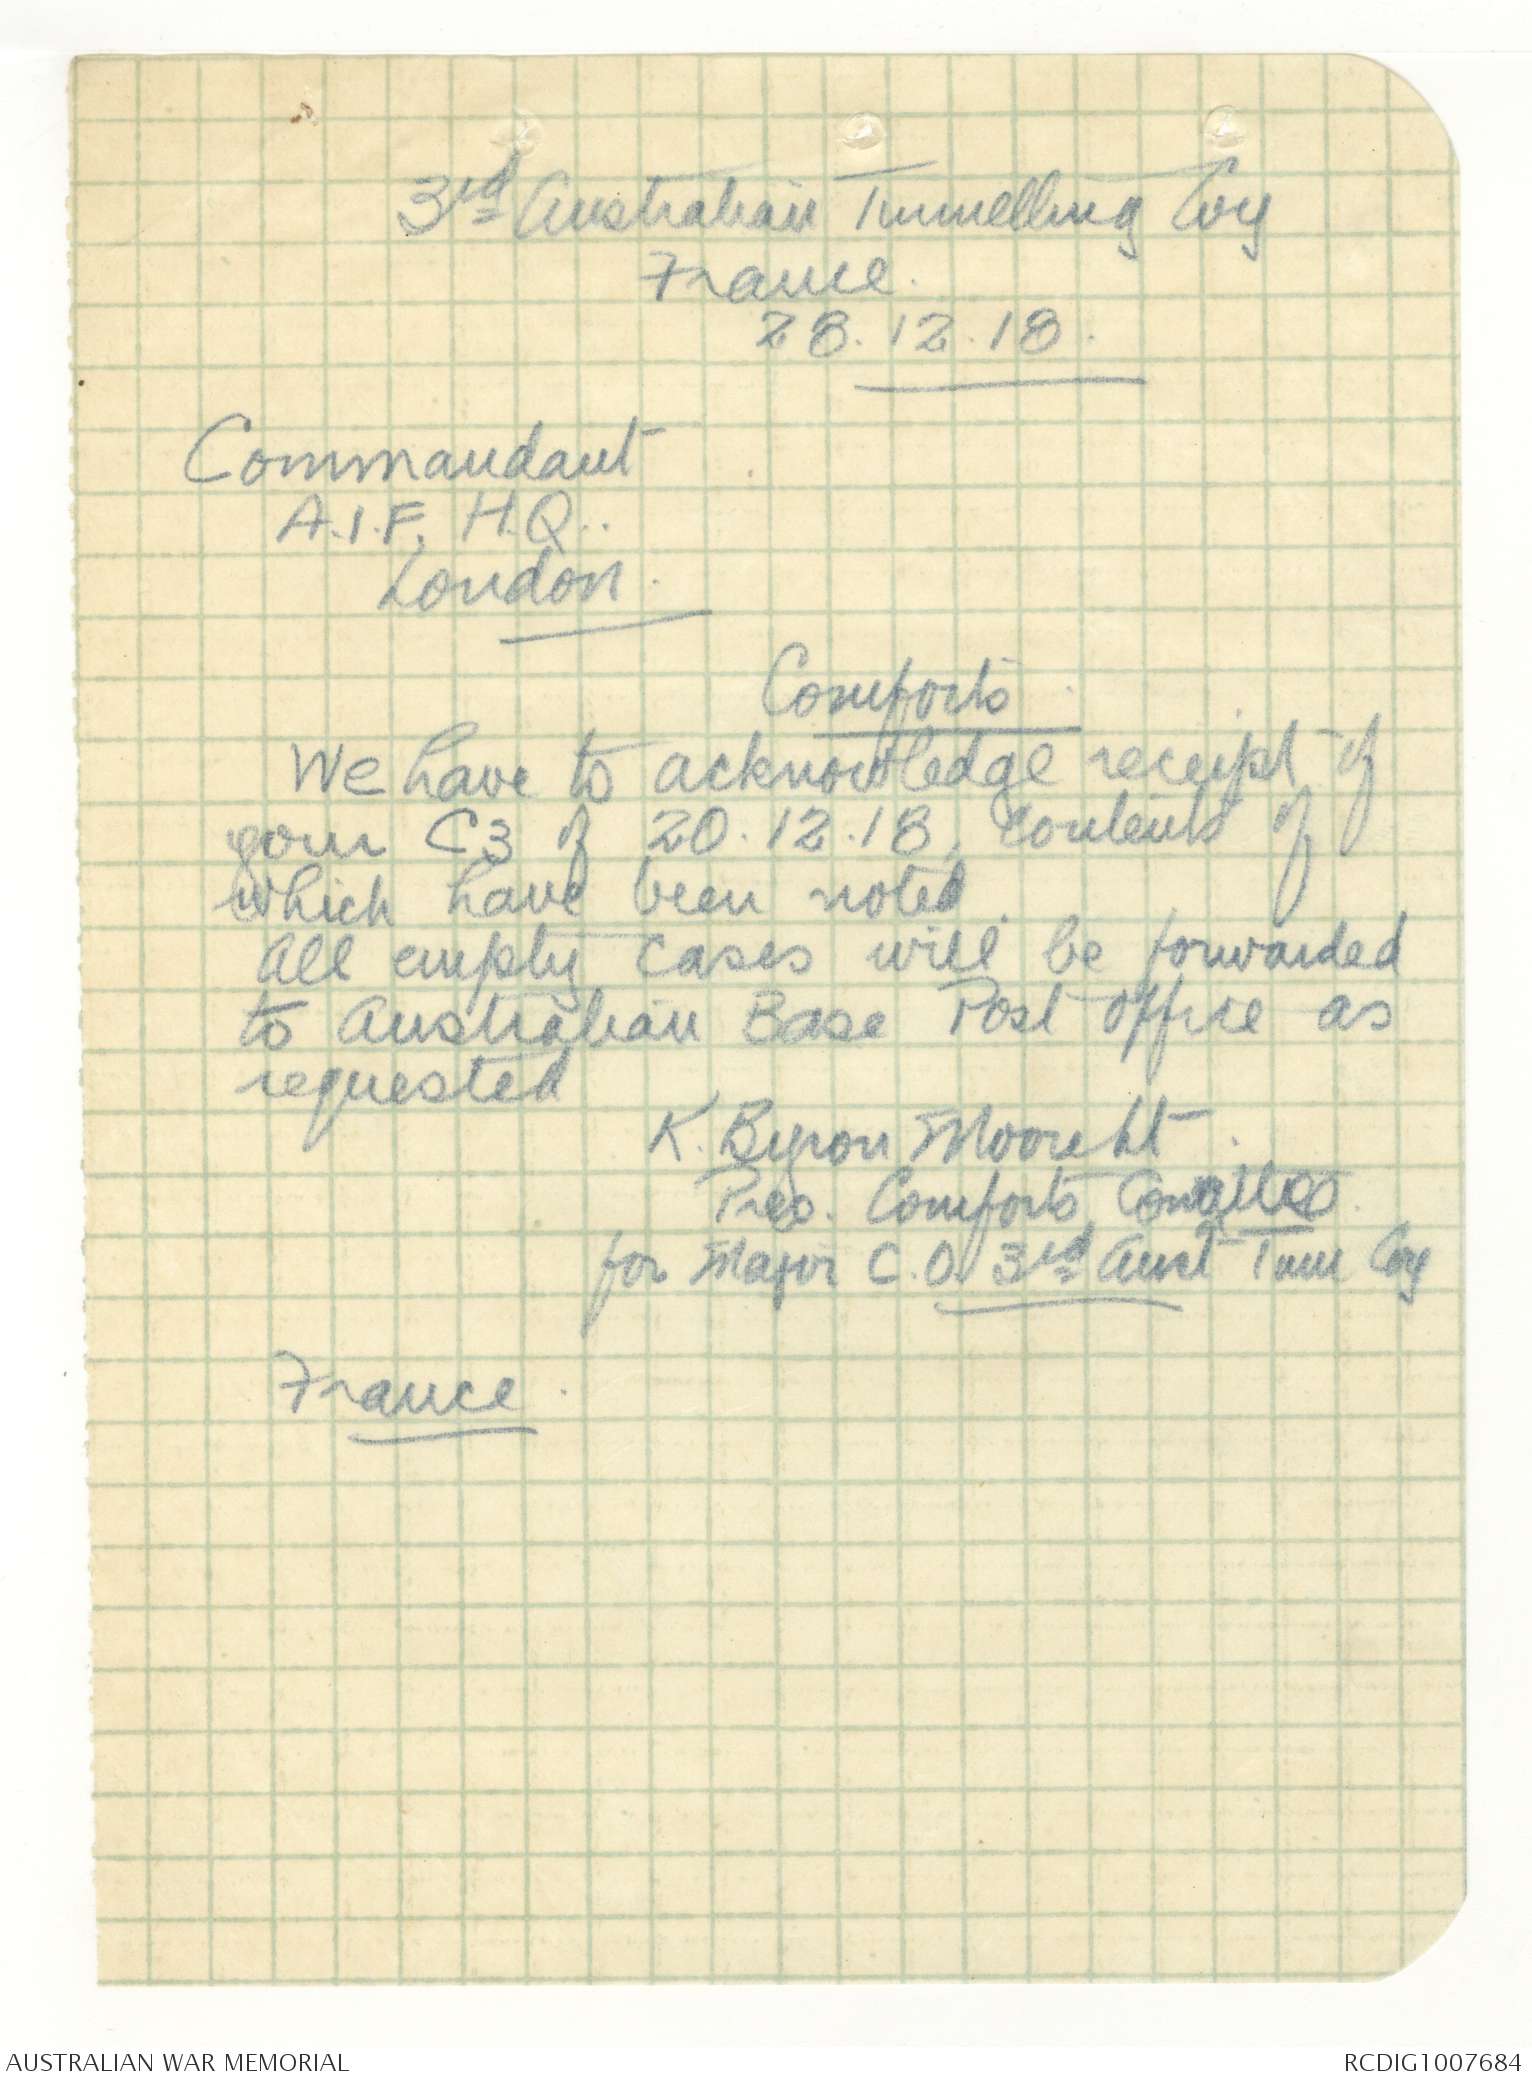 3rd Australian Tunnelling Coy
France.
28.12.18.
Commandant
A.I.F. H.Q..
London.
Comforts.
We have to acknowledge receipt of
your C3 of 20.12.18, contents of
which have been noted.
All empty cases will be forwarded
to Australian Base Post Office as
requested
K. Byron Moore Lt.
Pres. Comforts
for Major C.O. 3rd Aust Tunn Coy
France.
AUSTRALIAN WAR MEMORIAL
RCDIG1007684